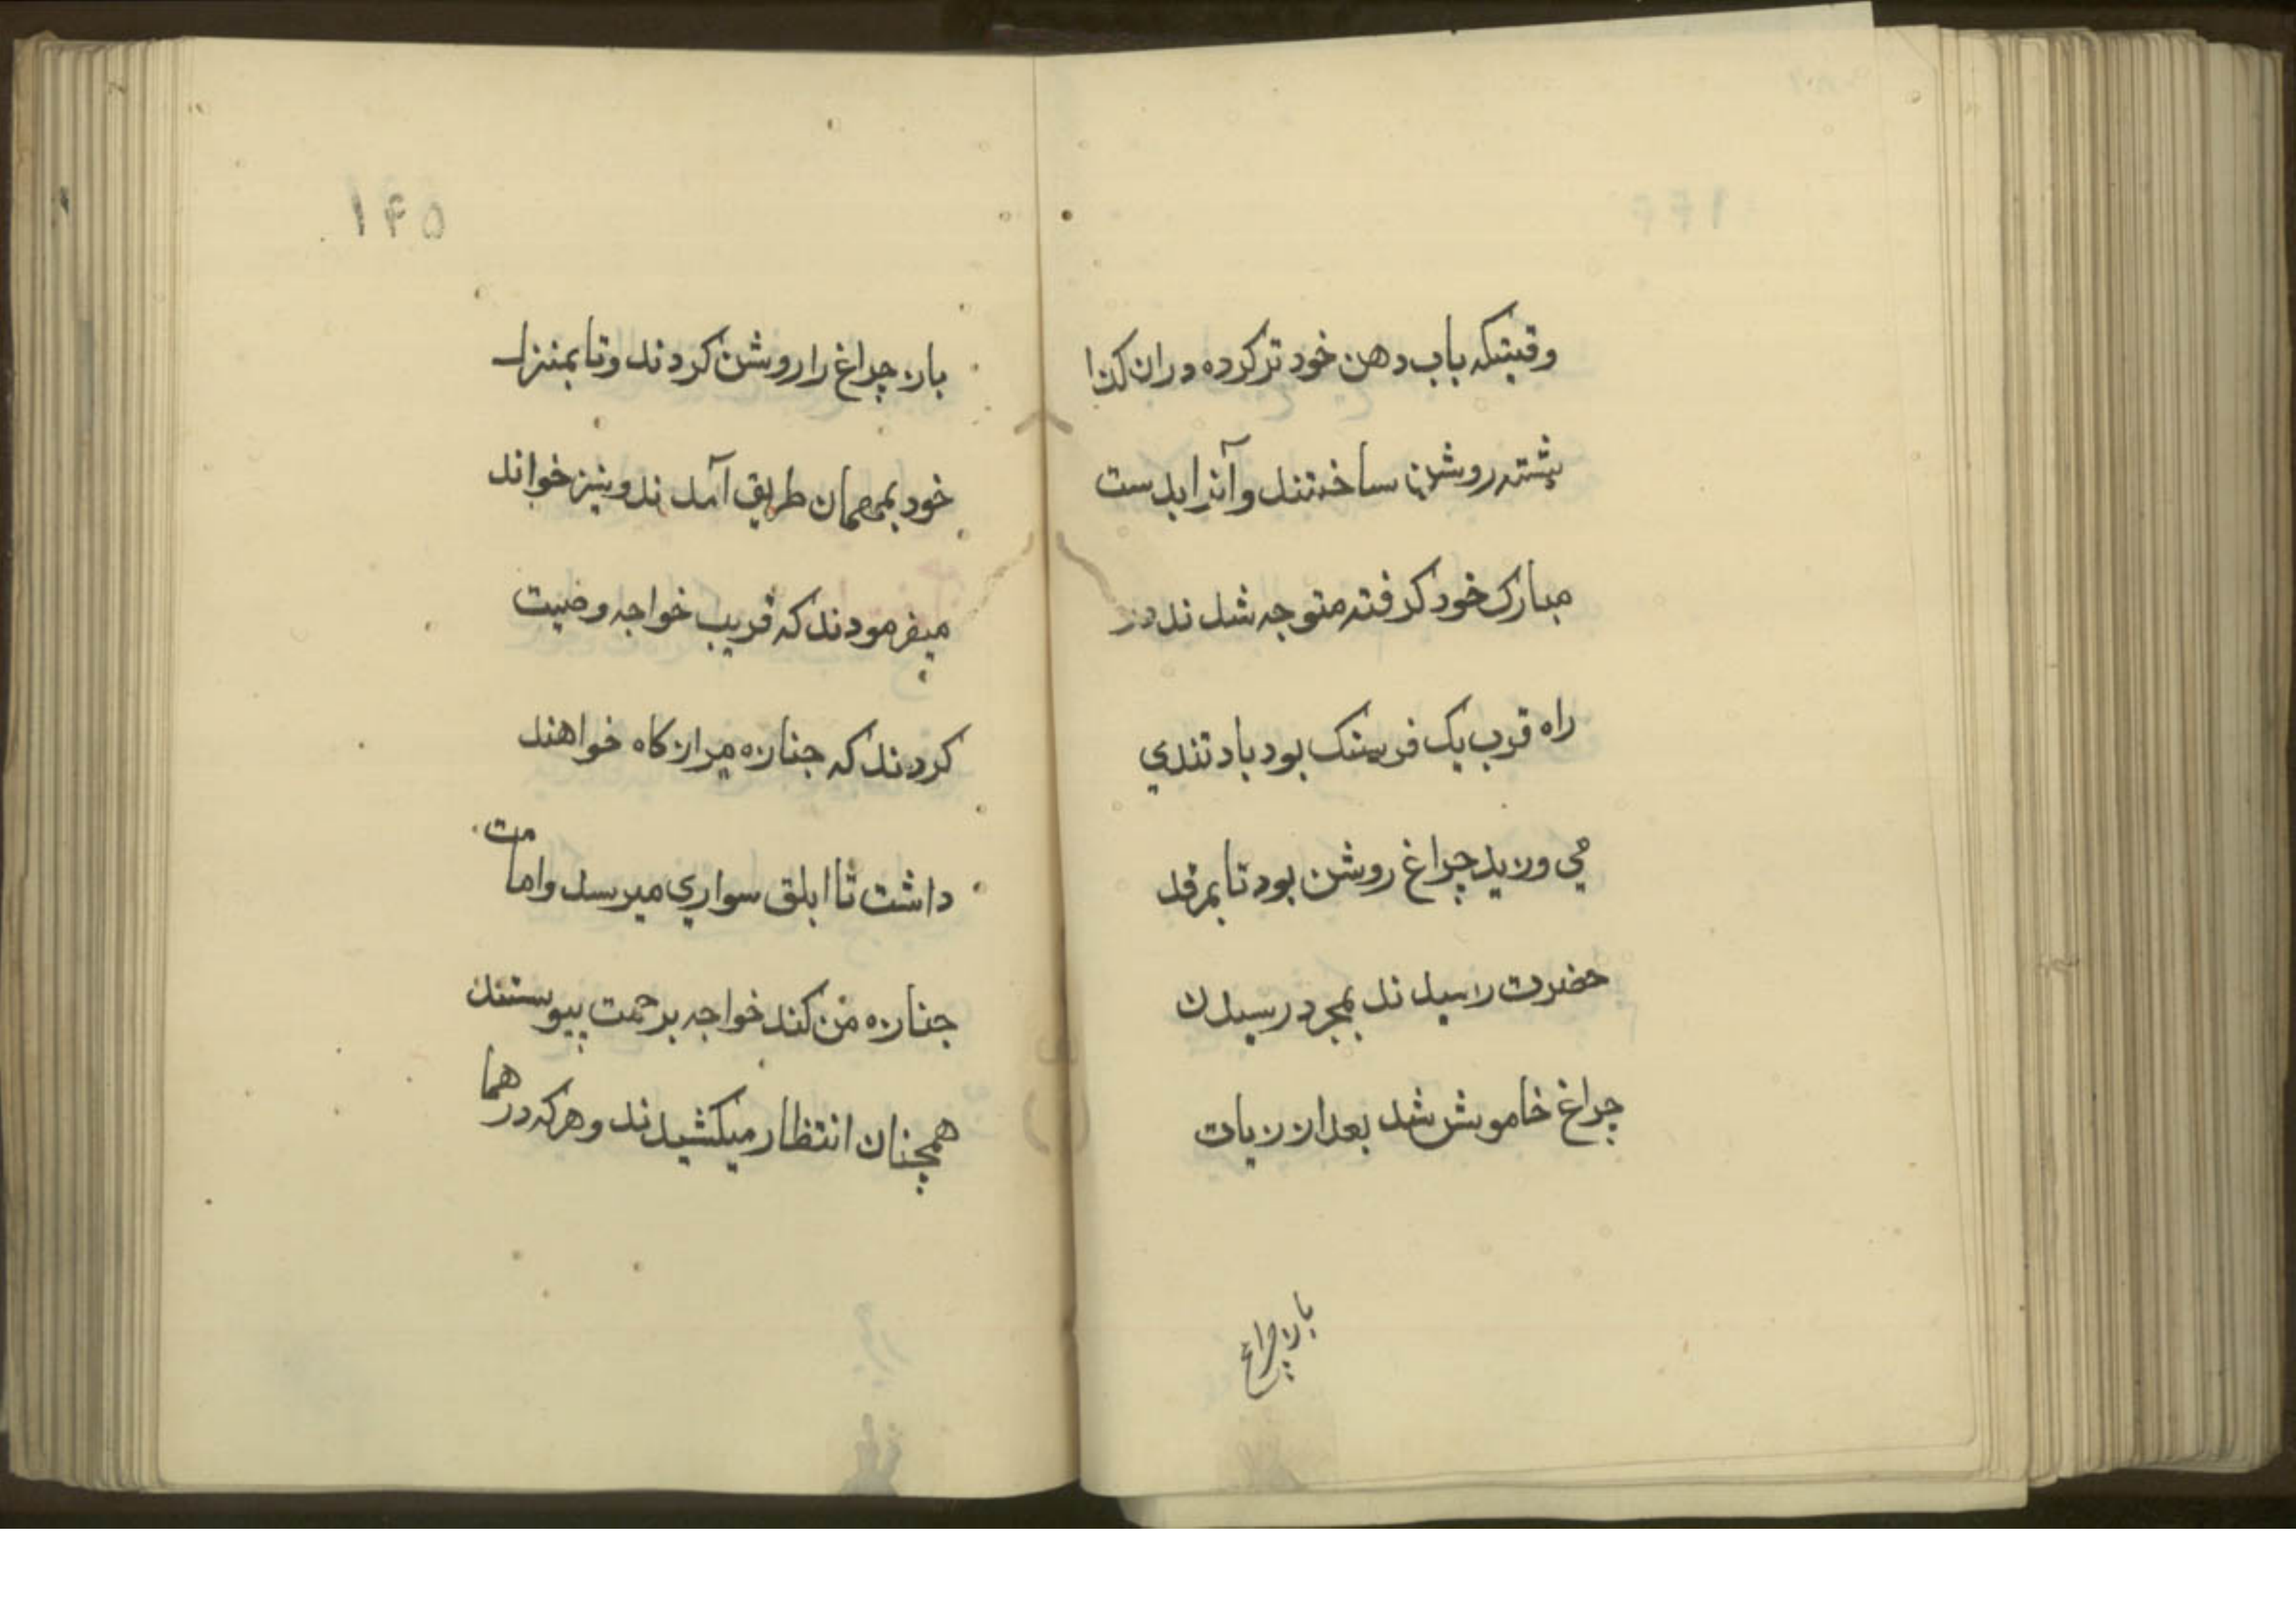 وقتیکه باب دهن خود تر کرده دران کذا
پشته روشن ساختند و آنرا بدست
مبارک خود کرفته متوجه شدند در
راه قرب یک فرسنک بود باد تندي
مي وزید چراغ روشن بود تا بمرقد
حضرت رسیدند بمجرد رسیدن
چراغ خاموش شد بعد از زیات
باز چراغ
۱۴۵
باز چراغ را روشن کردند و تا بمنزل
خود بهمان طریق آمدند و نیز خواند
میفرمودند که قریب خواجه وصیت
کردند که جنازه میرانکاه خواهند
داشت تا ابلق سواري میرسد و امامت
جنازه من کند خواجه برحمت پیوستند
همچنان انتظار میکشیدند و هرکه در هما